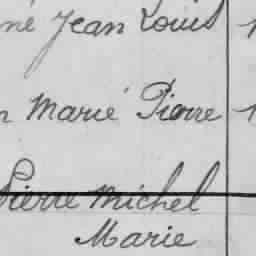 né Jean Louis
n Marie Pierre
Pierre Michel
Marie